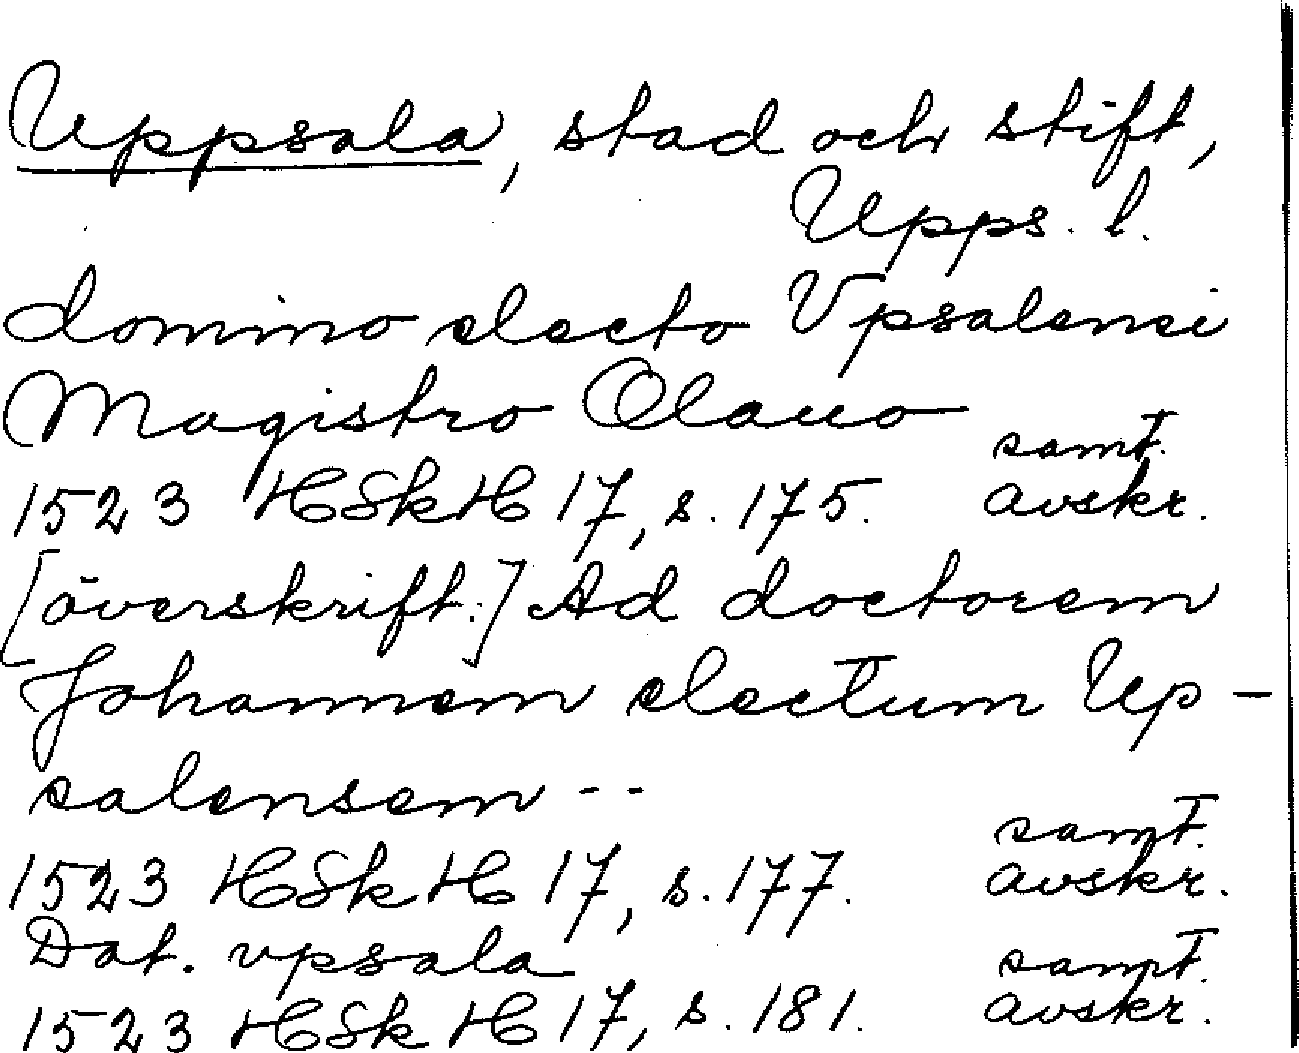 Uppsala, stad och stift,
Upps. l.
domino electo Vpsalensi
Magistro Olauo
samt.
1523 HSkH 17, s. 175. avskr.
[överskift:] Ad doctorem
Johannem electum Up-
salensem --
samt.
1523 HSkH 17, s. 177. avskr.
Dat. vpsala samt.
1523 HSkH 17, s. 181. avskr.